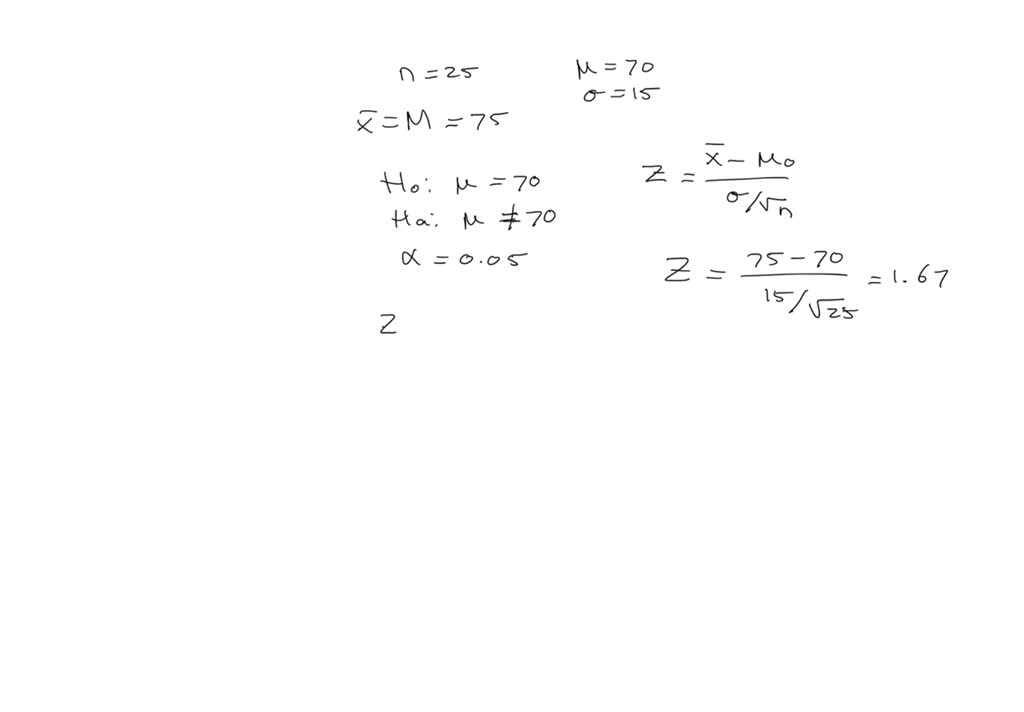 n = 25
μ = 70
σ = 15
x̄ = M = 75
Ho: μ = 70
Ha: μ ≠ 70
α = 0.05
Z
Z = (x̄ - μo) / (σ/√n)
Z = (75 - 70) / (15/√25) = 1.67